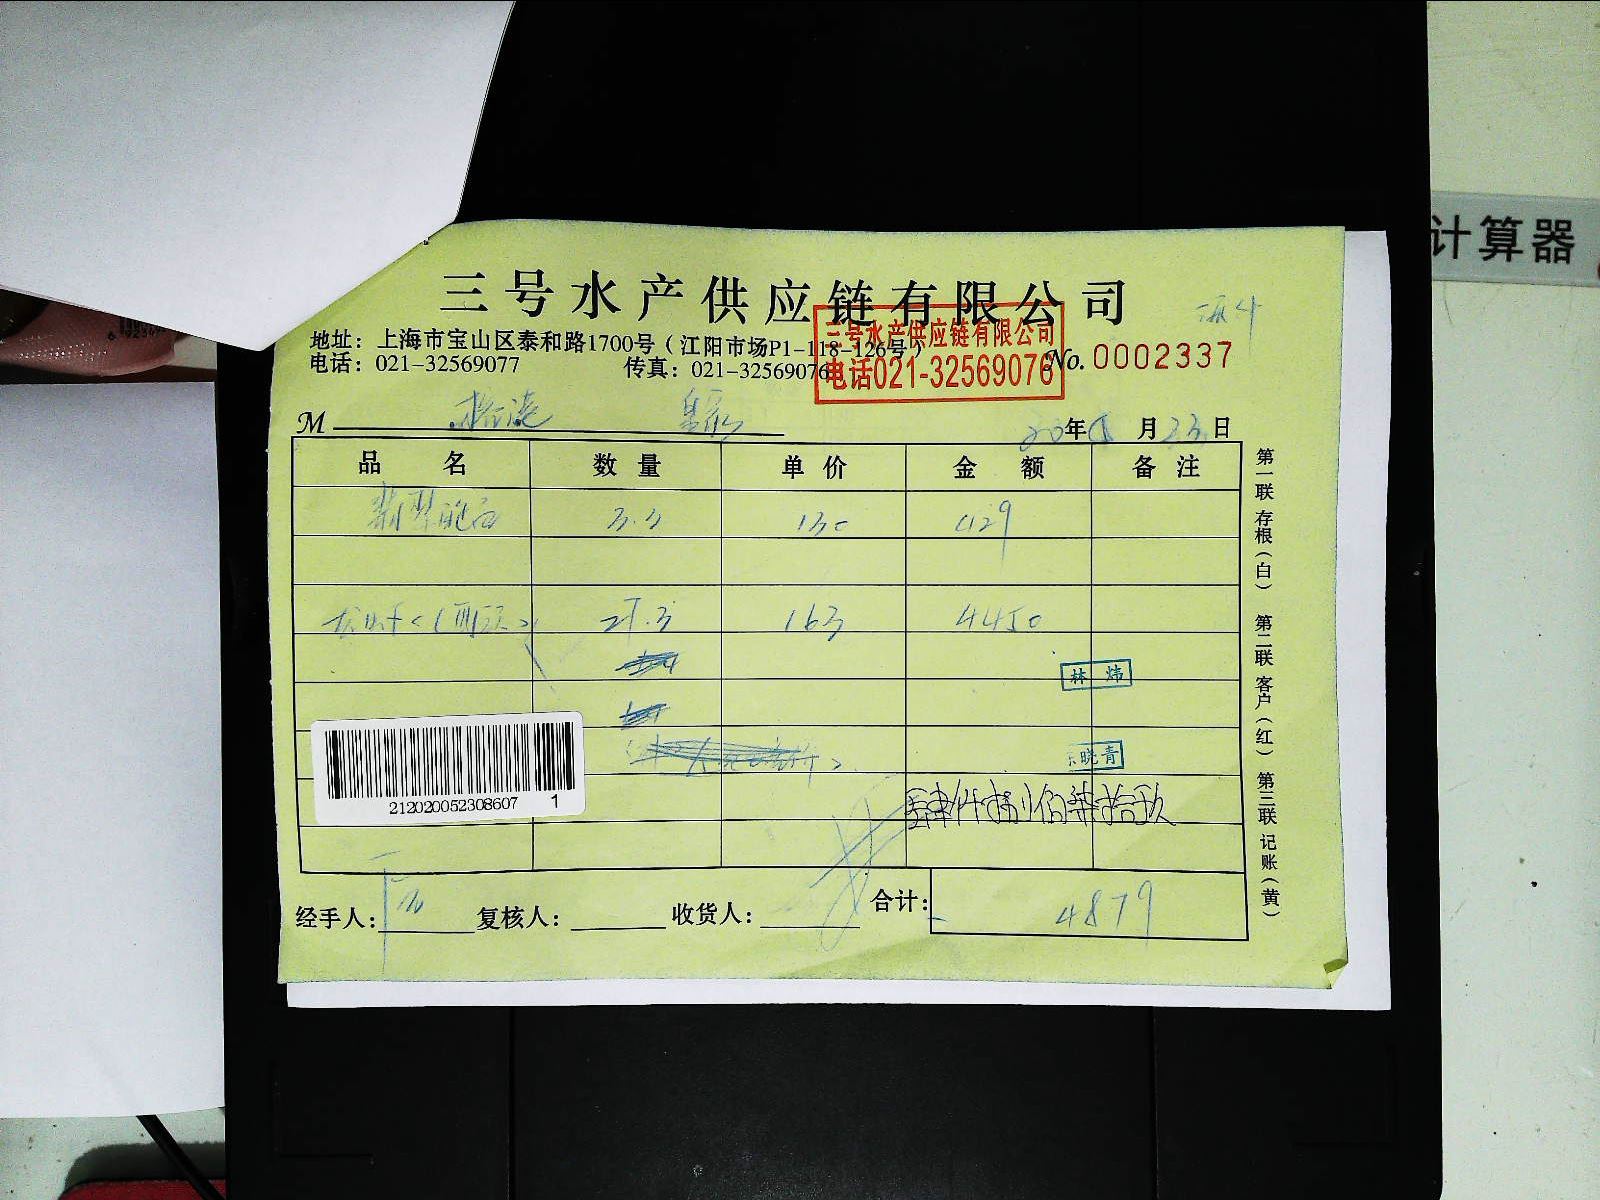 计算器
三号水产供应链有限公司
地址：上海市宝山区泰和路1700号（江阳市场P1-118-126号）
电话：021-32569077 传真：021-32569076
三号水产供应链有限公司
电话021-32569076
No. 0002337
M
20年 月23日
品名 数量 单价 金额 备注
翡翠鲍 3.3 130 429
163 4450
林炜
晓青
212020052308607 1
肆仟捌佰柒拾玖
经手人： 复核人： 收货人： 合计： 4879
第一联 存根（白） 第二联 客户（红） 第三联 记账（黄）